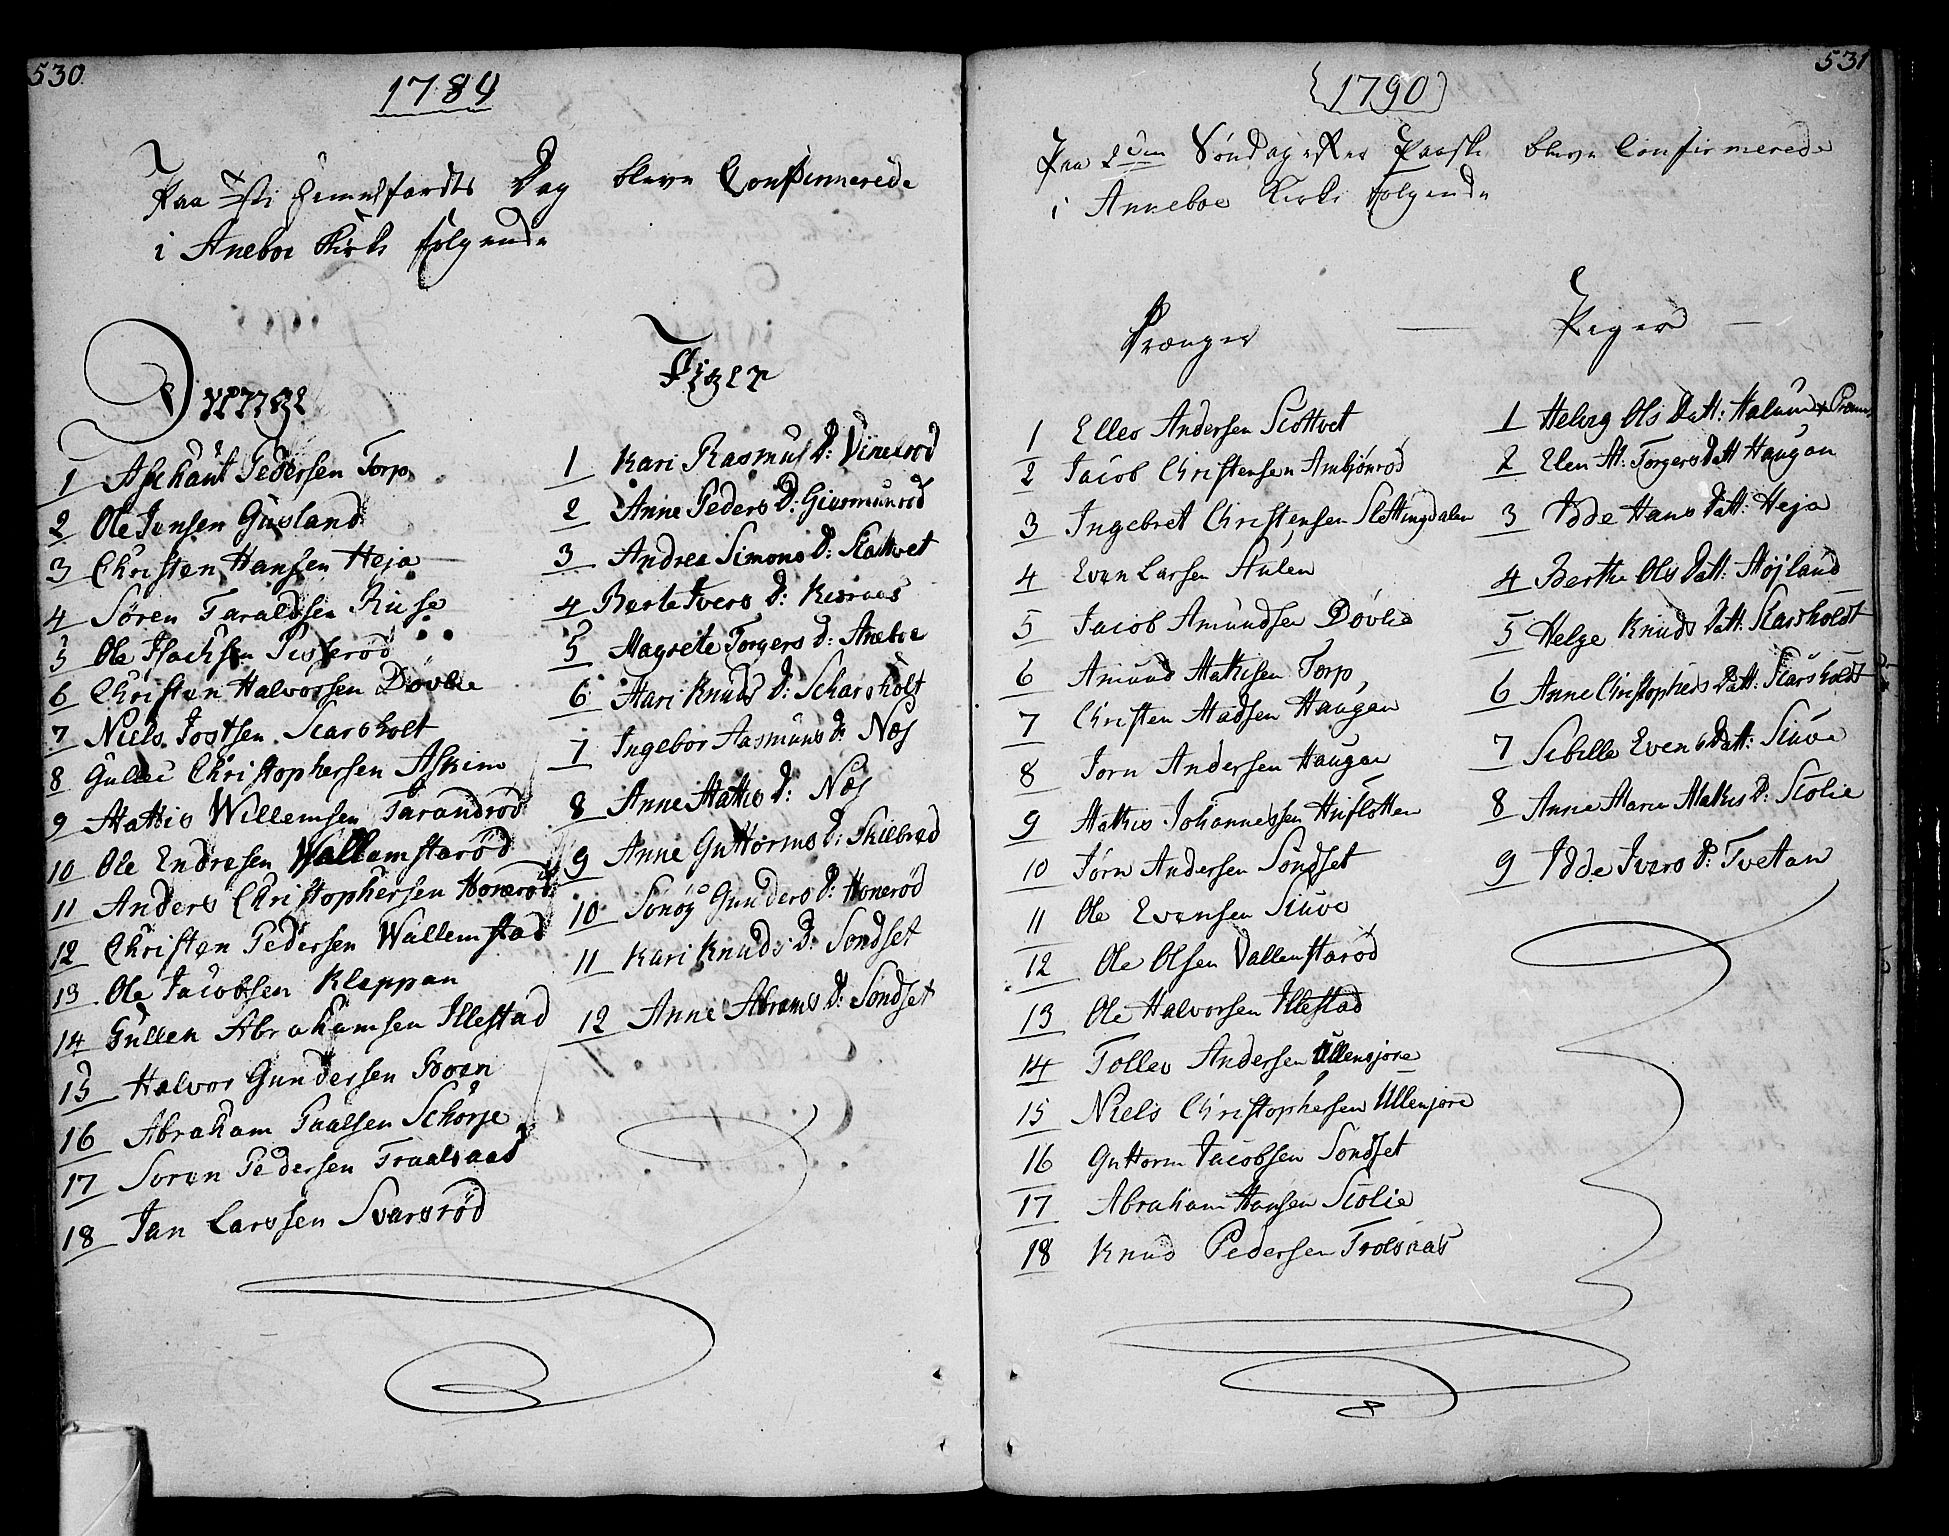 530
1784
Paa Christi Himmelfardts Dag bleve Confirmerede
i Aneboe Kirke følgende
Drenge
1 Aschaut Pedersen Torp
2 Ole Jensen Gusland
3 Christen Hansen Heja
4 Sören Taraldsen Riise
5 Ole Isachsen Pisserød
6 Christen Halvorsen Dövle
7 Niels Jostsen Scarsholt
8 Gullec Christophersen Askim
9 Mathis Willemsen Tarandrød
10 Ole Endresen Wallemstarød
11 Anders Christophersen Honerød
12 Christen Pedersen Wallemstad
13 Ole Jacobsen Kleppan
14 Gullen Abrahamsen Illestad
15 Halvor Gundersen Boen
16 Abraham Paalsen Schorje
17 Soren Pedersen Traalsaas
18 Jan Larssen Svarsrød
Piger
1 Kari Rasmus D: Vinesrod
2 Anne Peders D: Giusmunrod
3 Andrea Simons D: Skottvet
4 Berte Ivers D: Kisraas
5 Magrete Torgers D: Aneboe
6 Mari Knuds D: Scharsholt
7 Ingebor Aasmuns D: Næs
8 Anne Mathis D: Næs
9 Anne Guttorms D: Skilbred
10 Sonöy Gunders D: Honerød
11 Kari Knuds D: Sondset
12 Anne Abrams D: Sondset
531
1790
Paa 2den Søndag efter Paaske bleve Confirmerede
i Anneboe Kirke Følgende
Drænger
1 Ellev Andersen Scottvet
2 Jacob Christensen Ambjönrød
3 Ingebret Christensen Slettingdalen
4 Even Larsen Aulen
5 Jacob Amundsen Dövle
6 Amund Mathisen Torp
7 Christen Madsen Haugan
8 Jorn Andersen Haugan
9 Mathis Johannessen Huflotten
10 Jörn Andersen Söndset
11 Ole Evensen Siuve
12 Ole Olsen Vallemstarød
13 Ole Halvorsen Illestad
14 Tollev Andersen Ullensjore
15 Niels Christophersen Ullenjore
16 Guttorm Jacobsen Sondset
17 Abraham Hansen Scolie
18 Knud Pedersen Trolsaas
Piger
1 Helvig Ols Datt: Halum
2 Elen M: Torgers Datt Haugan
3 Idde Hans Datt: Heja
4 Berthe Ols Datt: Højland
5 Helge Knuds Datt: Skarsholdt
6 Anne Christophers Datt: Skarsholdt
7 Sebille Evens Datt: Siuve
8 Anne Marie Mathis D: Scolie
9 Idde Ivers D: Tvetan